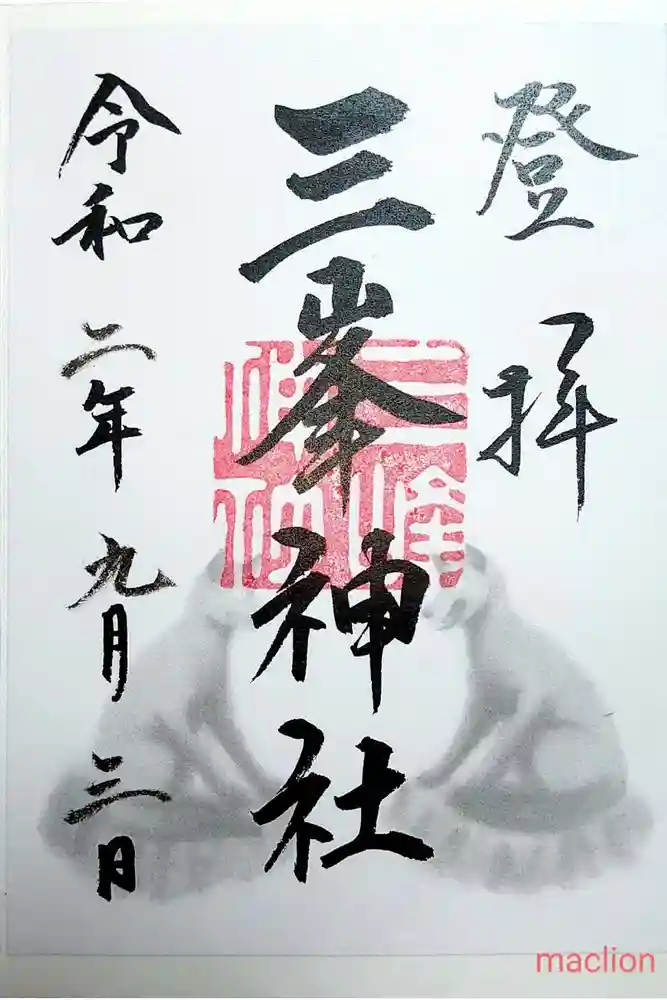 登拝
三峯神社
令和二年九月三日
maclion